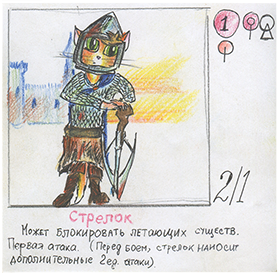 1
2/1
Стрелок
Может блокировать летающих существ.
Первая атака. (Перед боем, стрелок наносит
дополнительные 2ед. атаки).